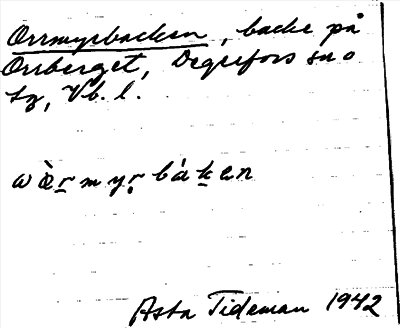 Orrmyrbacken, backe på
Orrberget, Degerfors sn o
lg, Vb. l.
wὰr̲myr̲bák̲en
Asta Tideman 1942